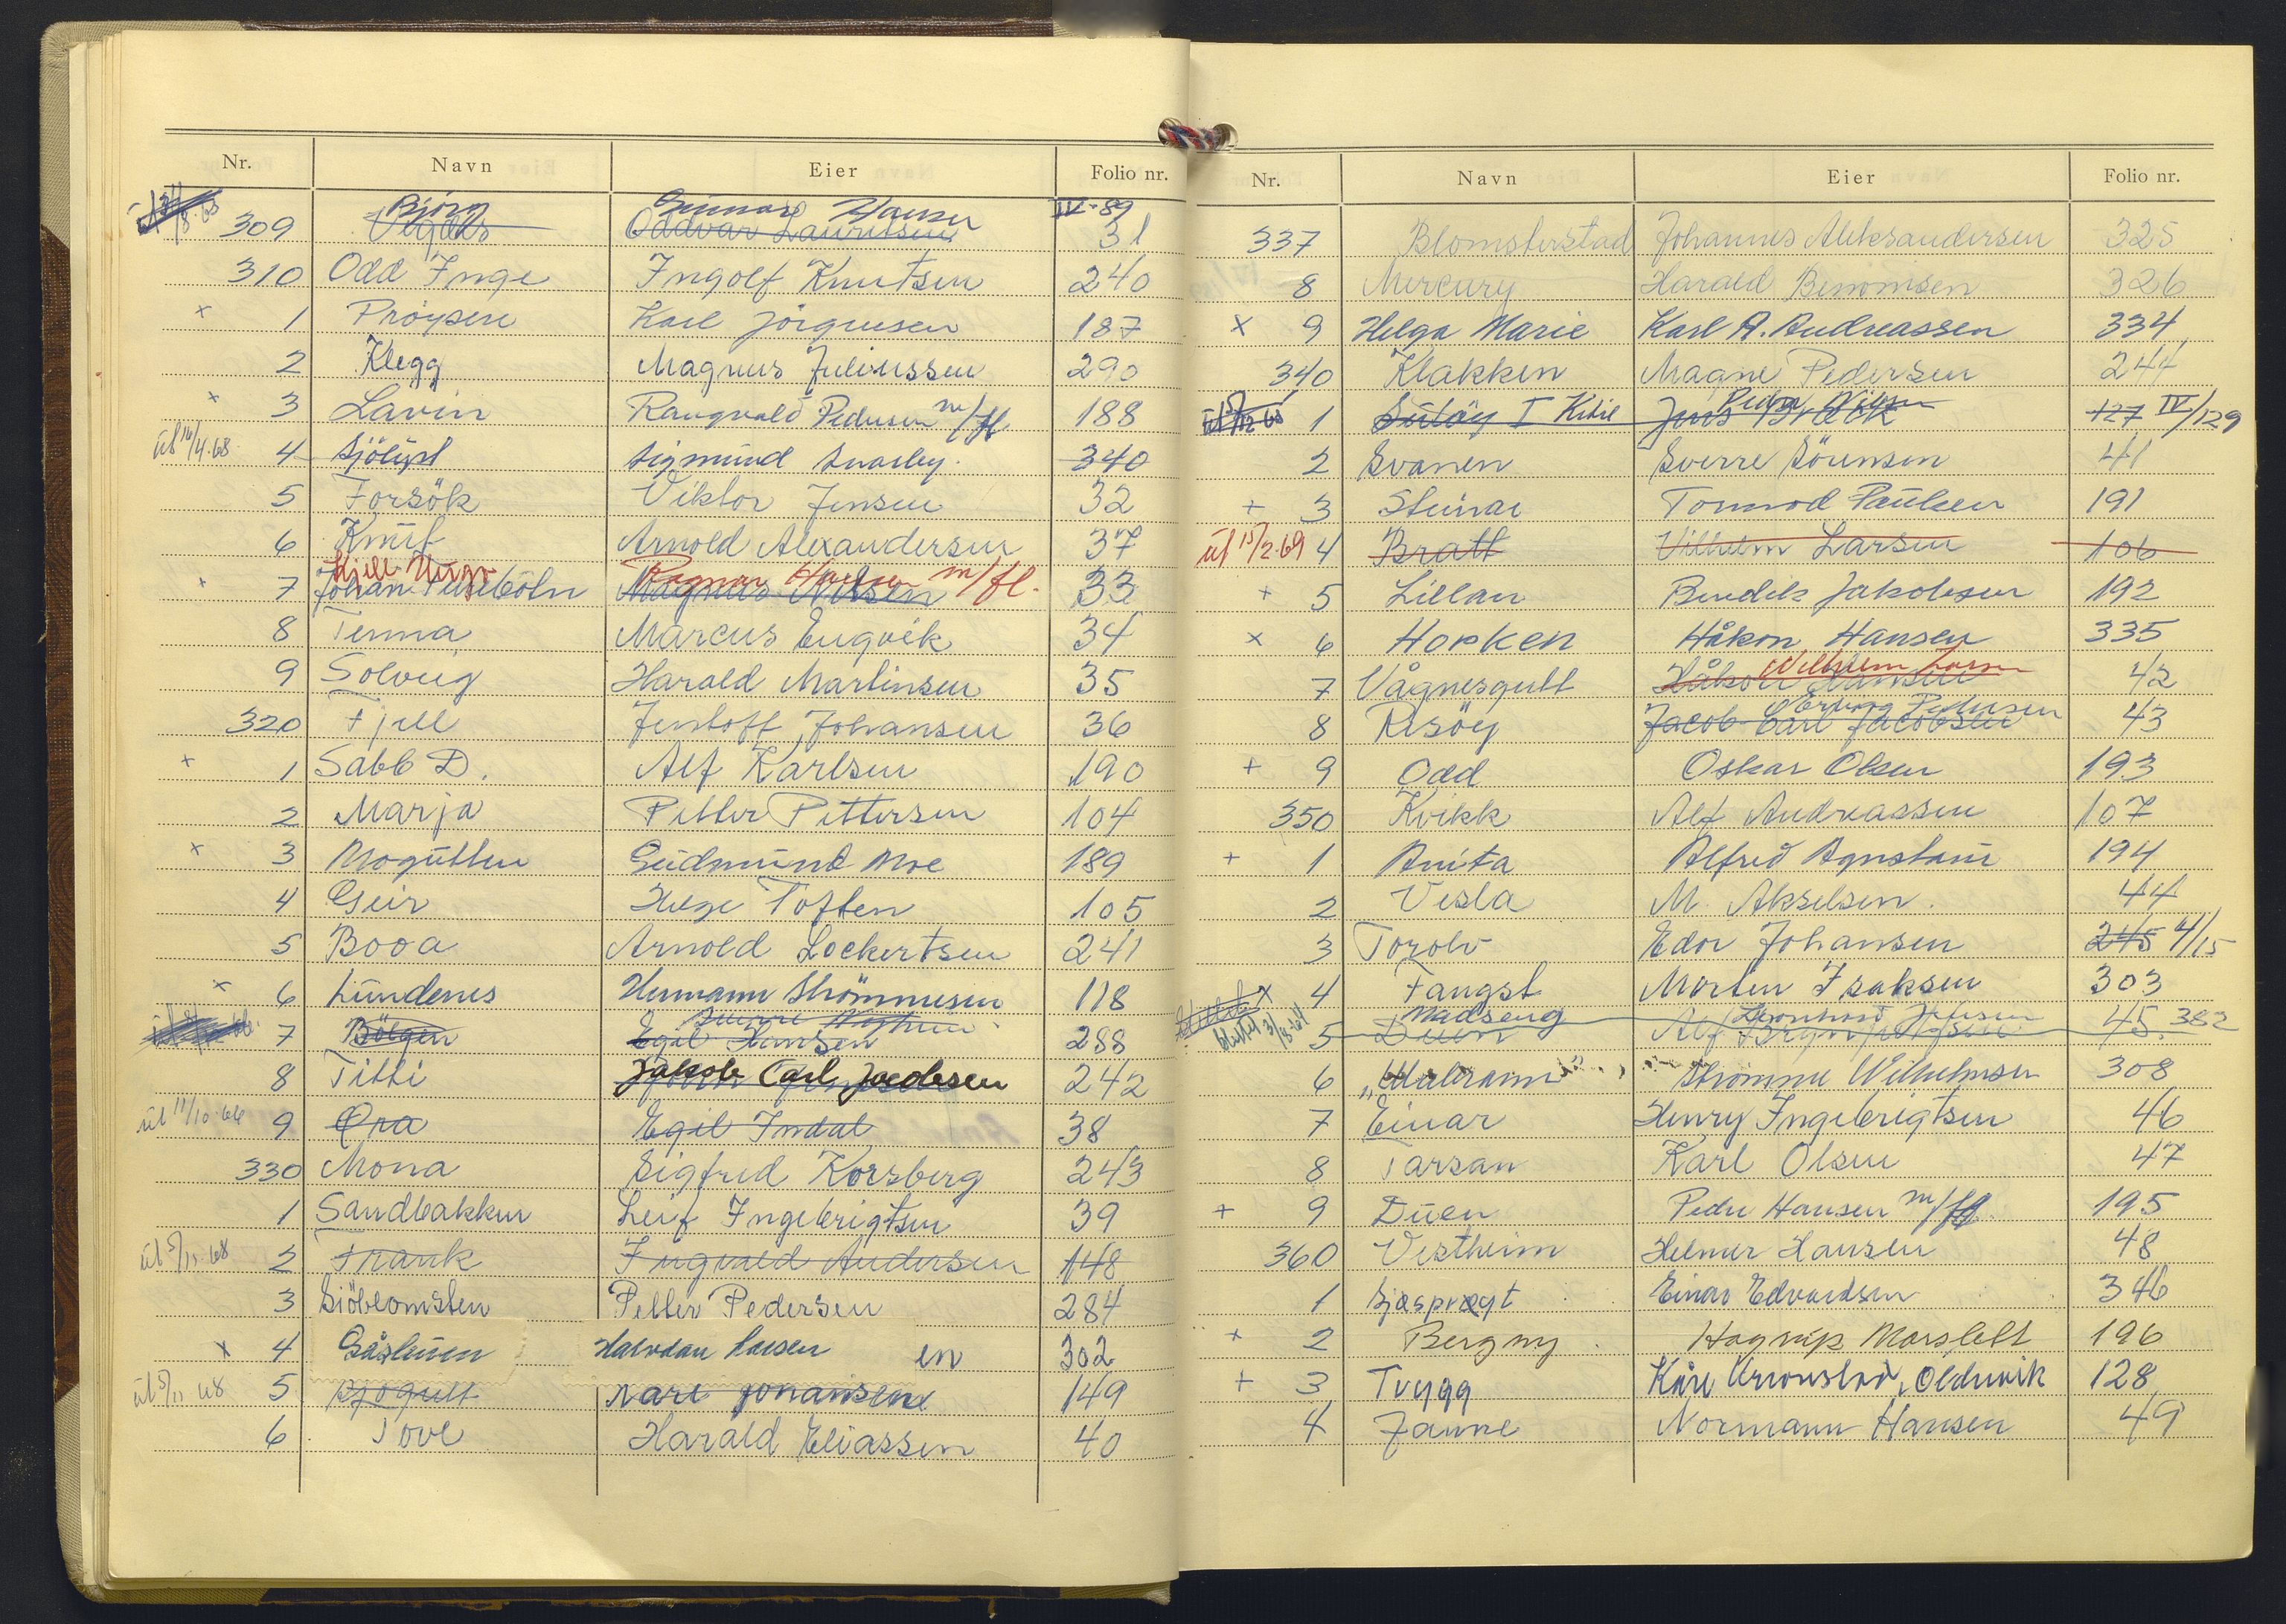 Nr. Navn Eier Folio nr.
Björg Gunnar Hansen IV-89
309 Vegdis Oddvar Lauritsen 31
310 Odd Inge Ingolf Knutsen 240
x 1 Pröysen Karl Jörgensen 187
2 Klegg Magnus Juliussen 290
x 3 Lavin Rangvald Pedersen m/fl 188
ut 16/4.68 4 Sjölyst Sigmund 340
5 Forsök Viktor Jensen 32
6 Knut Arnold Alexandersen 37
Ragnar Hansen m/fl.
x 7 Johan Magnus Nilsen 33
8 Terna Marcus Engvik 34
9 Solveig Harald Martinsen 35
320 Fjell Jentoft Johansen 36
x 1 Sabb D. Alf Karlsen 190
2 Marja Petter Pettersen 104
x 3 Mogutten Gudmund Moe 189
4 Geir Helge Toften 105
5 Booa Arnold Lockertsen 241
x 6 Lundenes Hermann Strömmesen 118
7 Bölgen Egil Hansen 288
8 Titti Jakob Carl Jacobsen 242
ut 11/10.66 9 Ora Egil Indal 38
330 Mona Sigfred Korsberg 243
1 Sandbakken Leif Ingebrigtsen 39
ut 5/11.68 2 Frank Ingvald Andersen 148
3 Sjöblomsten Petter Pedersen 284
x 4 Gåslunn Halvdan Larsen en 302
ut 5/11 68 5 Sjögutt Karl Johansen 149
6 Tove Harald Eliassen 40
Nr. Navn Eier Folio nr.
337 Blomsterstad Johannes Aleksandersen 325
8 Mercury Harald Benjominsen 326
x 9 Helga Marie Karl A. Andreassen 334
340 Klakken Magne Pedersen 244
Peder Nilsen
1 Suløy I Kitil Jens 127 IV/129
2 Svanen Sverre Sörensen 41
+ 3 Steinar Tormod Paulsen 191
ut 15/2.69 4 Bratt Vilhelm Larsen 106
+ 5 Lillan Bendik Jakobsen 192
x 6 Hopken Håkon Hansen 335
Wilhelm Larsen
7 Vågnesgutt Håkon Hansen 42
Erling Pedersen
8 Risöy Jacob Carl Jacobsen 43
+ 9 Odd Oskar Olsen 193
350 Kvikk Alf Andreassen 107
+ 1 Anita Alfred 194
2 Vesla M. Akselsen. 44
3 Torolv Edor Johansen 245 4/15
x 4 Fangst Morten Isaksen 303
Madseng Leonhard Jensen 382
5 Duen Alf 45.
6 Strömme Wilhelmsen 308
7 Einar Henry Ingebrigtsen 46
8 Tarzan Karl Olsen 47
+ 9 Duen Peder Hansen m/fl 195
360 Vestheim Helmer Hansen 48
1 Sjøsprøyt Einar Edvardsen 346
+ 2 Bergny Hagrup Marsfelt 196
+ 3 Trygg Kåre Kronstad, Oldervik 128
4 Janne Normann Hansen 49